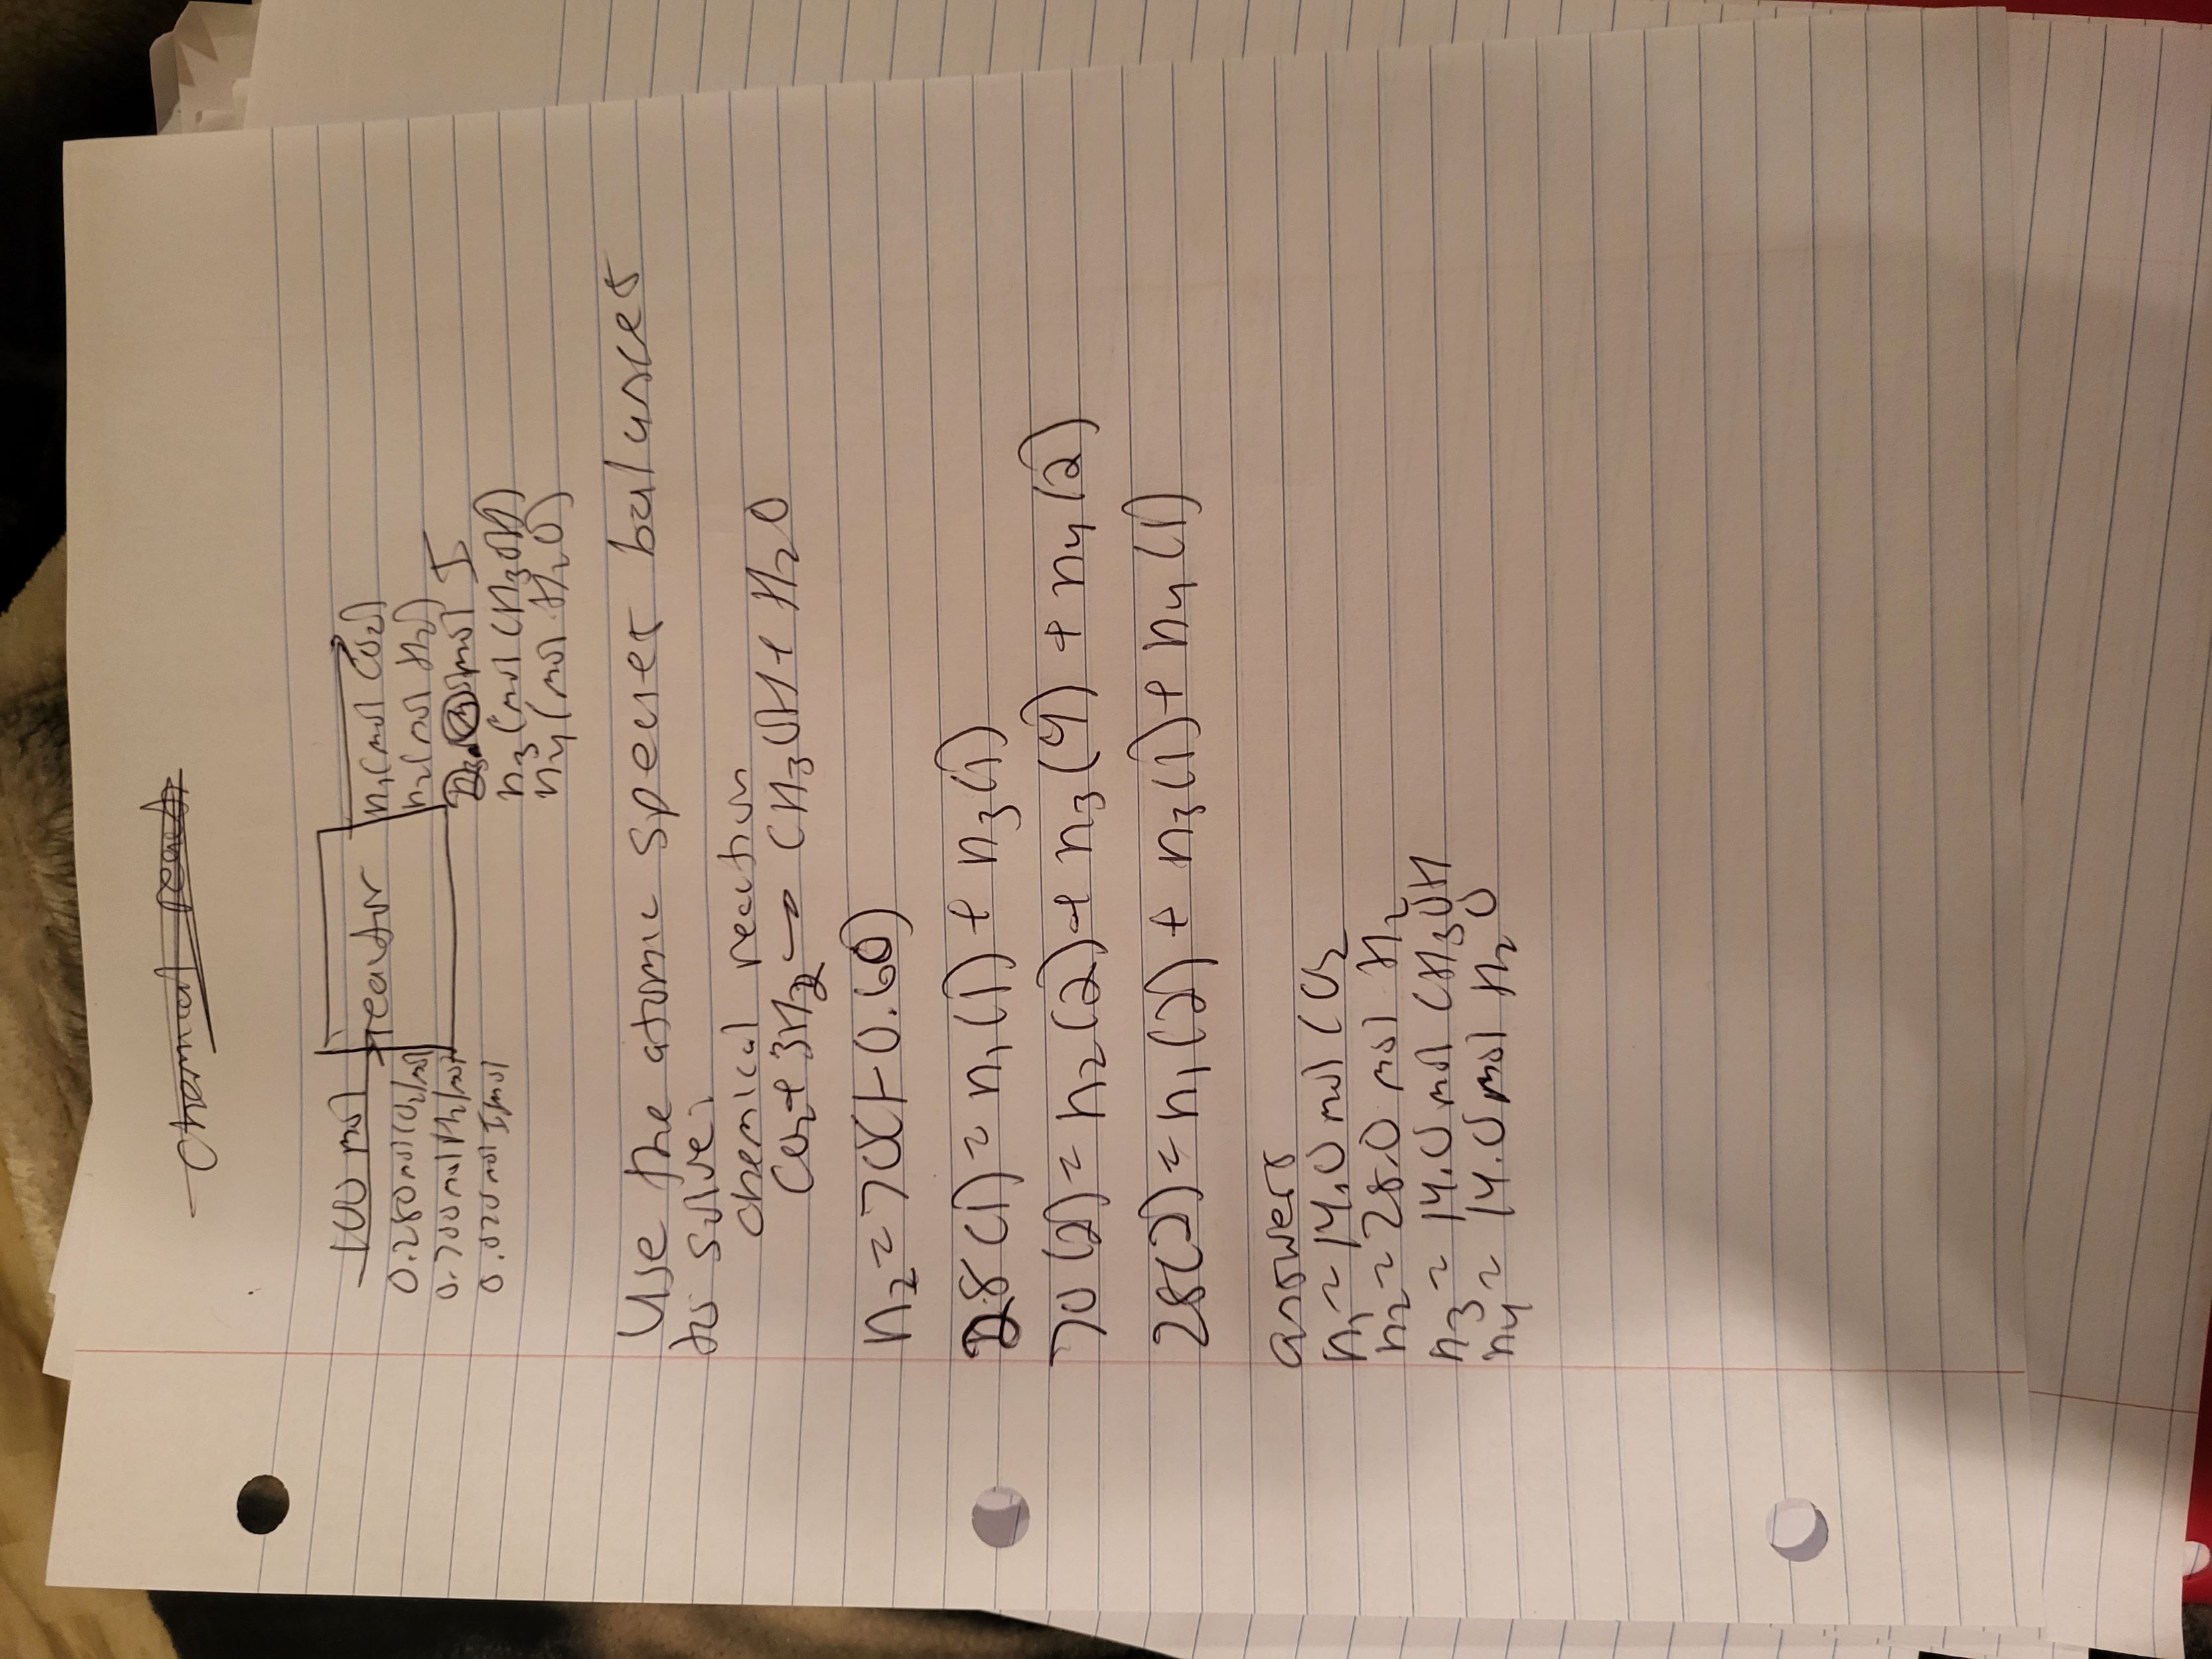 100 mol
reactor
0.280 mol CO2/mol
0.700 mol H2/mol
0.020 mol I/mol
n1(mol CO2)
n2(mol H2)
mol I
n3(mol CH3OH)
n4(mol H2O)
Use the atomic species balances
to solve.
chemical reaction
CO2 + 3H2 → CH3OH + H2O
n2 = 70(1-0.60)
28(1) = n1(1) + n3(1)
70(2) = n2(2) + n3(4) + n4(2)
28(2) = n1(2) + n3(1) + n4(1)
answers
n1 = 14.0 mol CO2
n2 = 28.0 mol H2
n3 = 14.0 mol CH3OH
n4 = 14.0 mol H2O